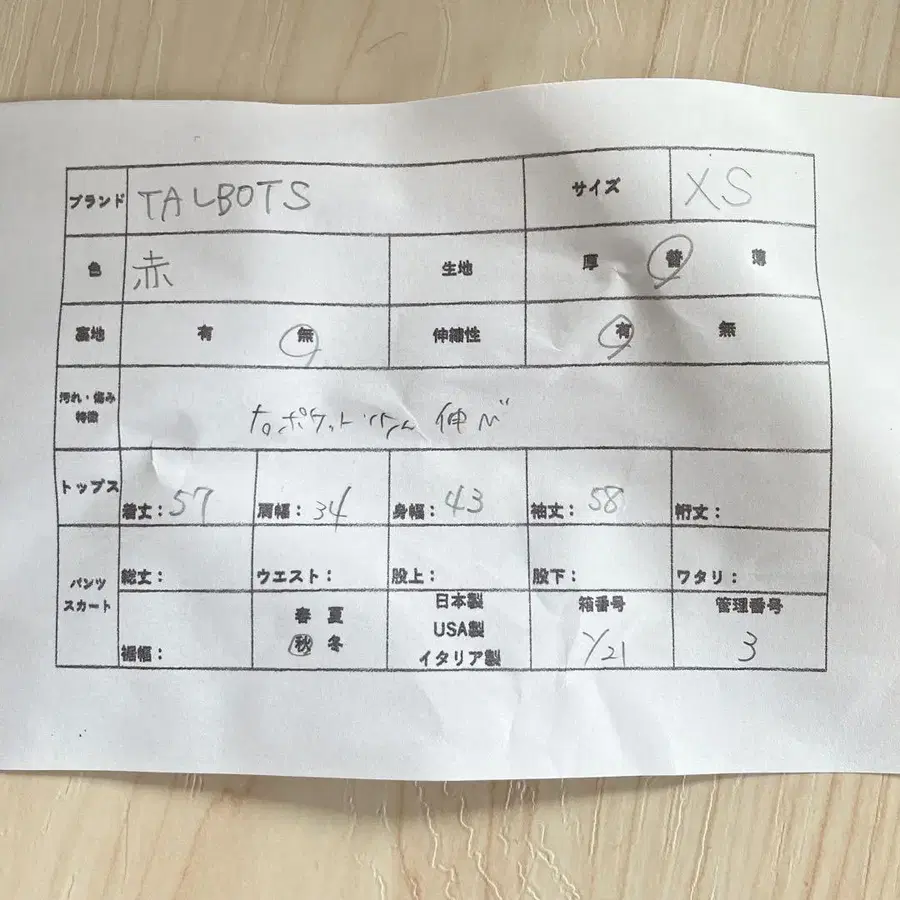 ブランド TALBOTS サイズ XS
色 赤 生地 厚 普 薄
裏地 有 無 伸縮性 有 無
汚れ・傷み
特徴
ポケット 伸び
トップス 着丈:57 肩幅:34 身幅:43 袖丈:58 裄丈:
パンツ
スカート
総丈: ウエスト: 股上: 股下: ワタリ:
裾幅:
春 夏
秋 冬
日本製
USA製
イタリア製
箱番号
1/21
管理番号
3